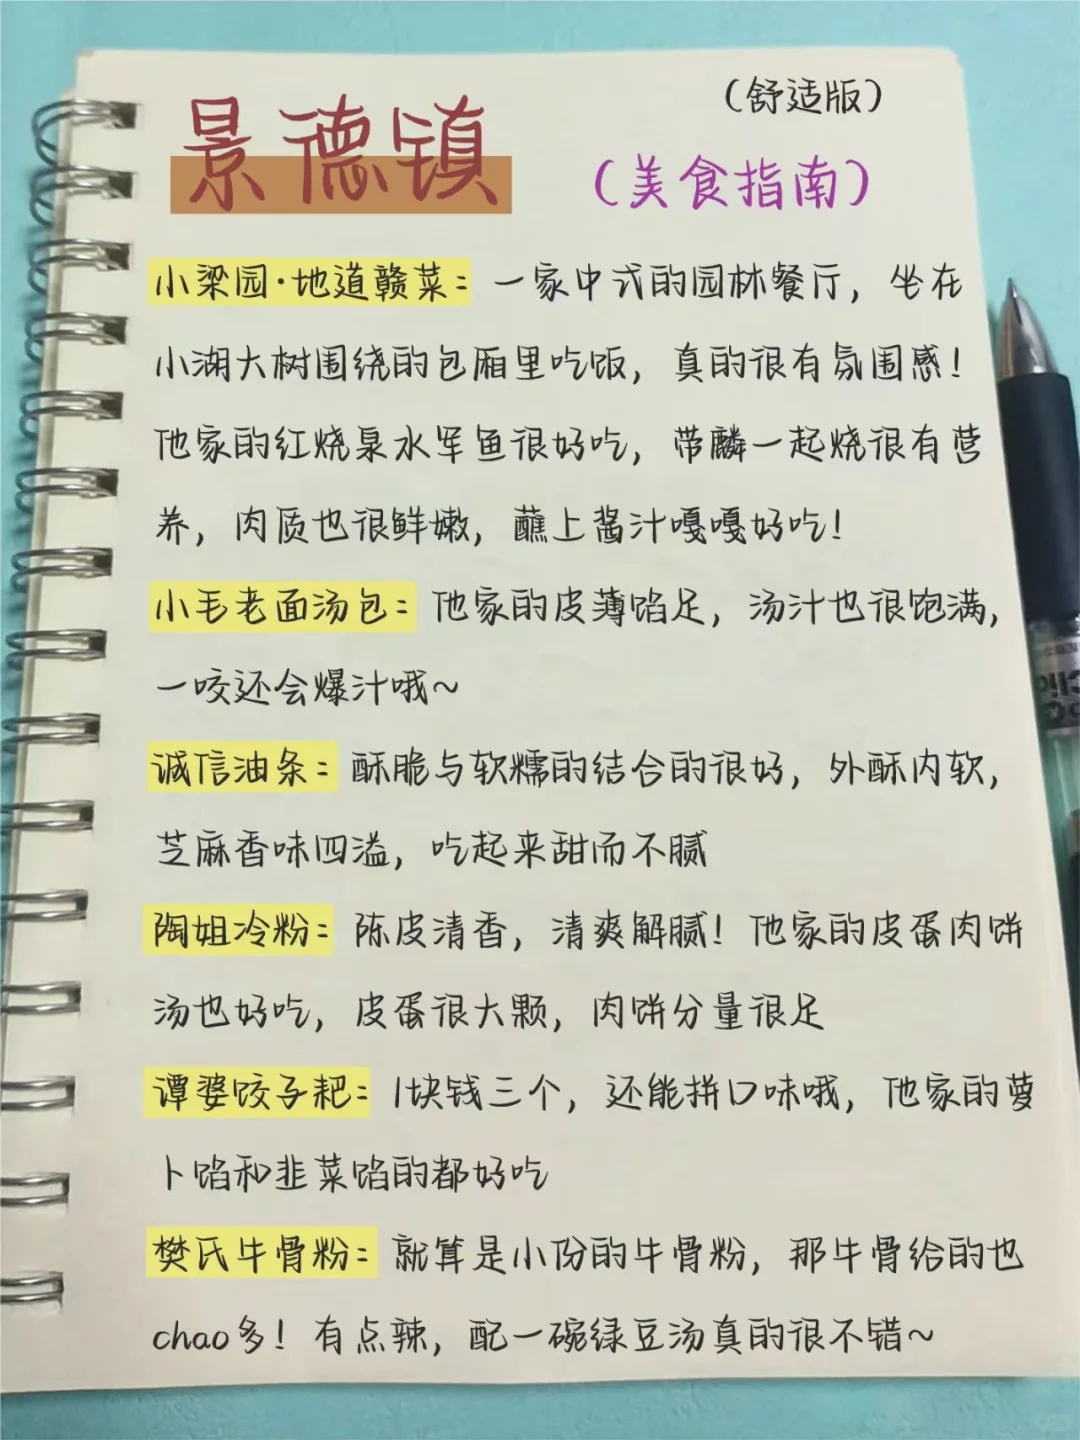 （舒适版）
景德镇
（美食指南）
小梁园·地道赣菜：一家中式的园林餐厅，坐在
小湖大树围绕的包厢里吃饭，真的很有氛围感！
他家的红烧泉水军鱼很好吃，带麟一起烧很有营
养，肉质也很鲜嫩，蘸上酱汁嘎嘎好吃！
小毛老面汤包：他家的皮薄馅足，汤汁也很饱满，
一咬还会爆汁哦~
诚信油条：酥脆与软糯的结合的很好，外酥内软，
芝麻香味四溢，吃起来甜而不腻
陶姐冷粉：陈皮清香，清爽解腻！他家的皮蛋肉饼
汤也好吃，皮蛋很大颗，肉饼分量很足
谭婆饺子耙：1块钱三个，还能拼口味哦，他家的萝
卜馅和韭菜馅的都好吃
樊氏牛骨粉：就算是小份的牛骨粉，那牛骨给的也
chao多！有点辣，配一碗绿豆汤真的很不错~